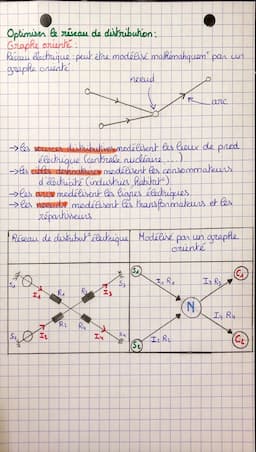 Optimiser le réseau de distribution :
Graphe orienté :
Réseau électrique : peut être modélisé mathématiquemt par un
graphe orienté
nœud
arc
→ les sources distributrices modélisent les lieux de prod
électrique (centrale nucléaire ...)
→ les modélisent les consommateurs
d'électricité (industries, habitat)
→ les arcs modélisent les lignes électriques
→ les nœuds modélisent les transformateurs et les
répartiteurs
Réseau de distribut° électrique
Modélisé par un graphe
orienté
I1 R1 R3 I3
I2 R2 R4 I4
S1 I1 R1 I3 R3 C1
N
S2 I2 R2 I4 R4 C2